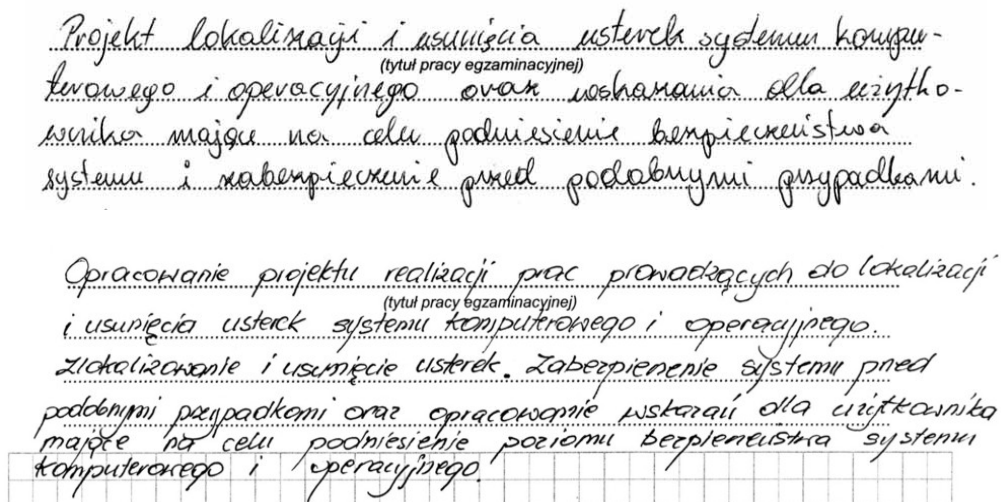 Projekt lokalizacji i usunięcia usterek systemu kompu-
(tytuł pracy egzaminacyjnej)
terowego i operacyjnego oraz wskazania dla użytko-
wnika mające na celu podniesienie bezpieczeństwa
systemu i zabezpieczenie przed podobnymi przypadkami.
Opracowanie projektu realizacji prac prowadzących do lokalizacji
(tytuł pracy egzaminacyjnej)
i usunięcia usterek systemu komputerowego i operacyjnego.
Zlokalizowanie i usunięcie usterek. Zabezpieczenie systemu przed
podobnymi przypadkami oraz opracowanie wskazań dla użytkownika
mające na celu podniesienie poziomu bezpieczeństwa systemu
komputerowego i operacyjnego.